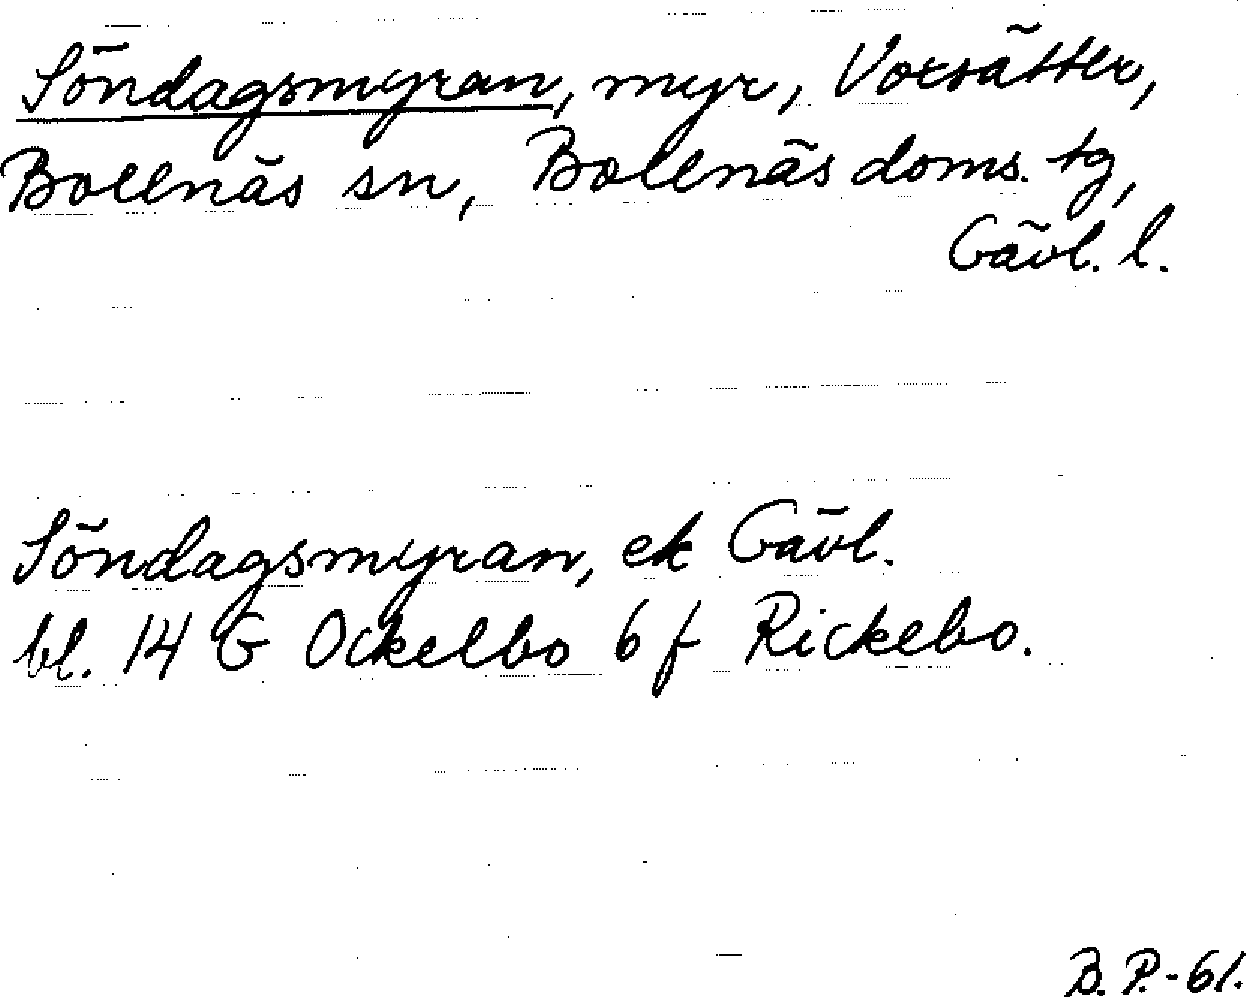 Söndagsmyran, myr, Vorsätter,
Bollnäs sn, Bollnäs doms. tg,
Gävl. l.
Söndagsmyran, ek Gävl.
bl. 14 G Ockelbo 6 f Rickebo.
B. P. - 61.